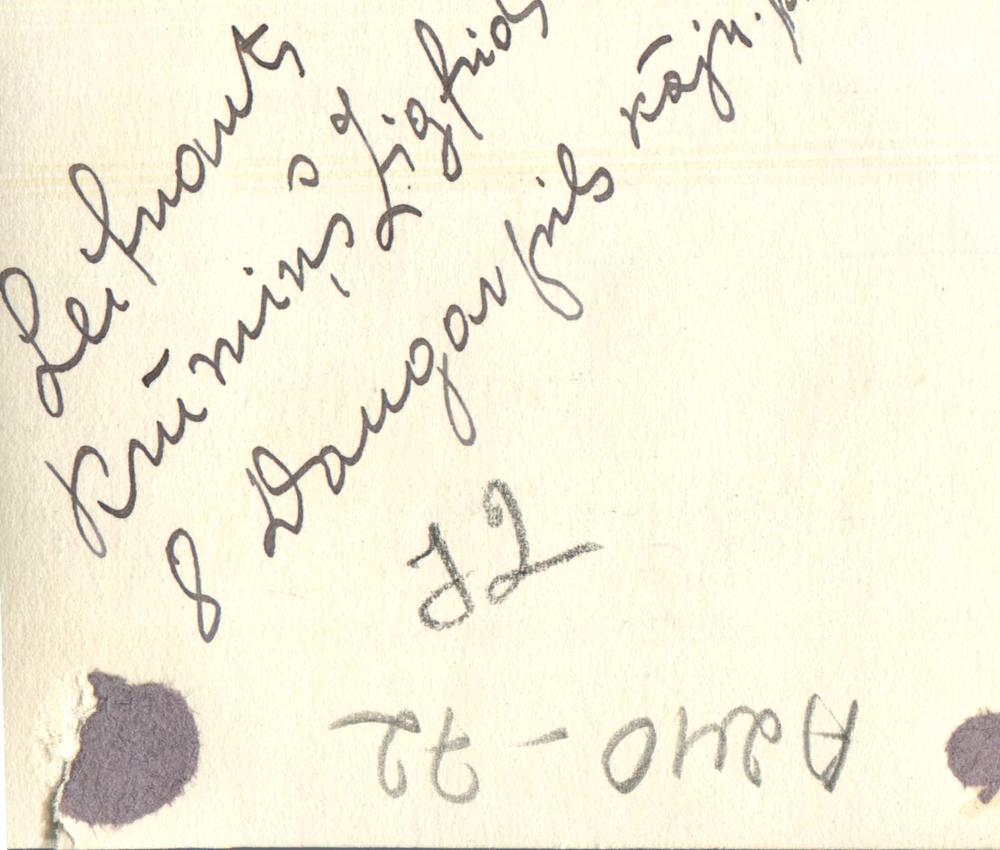 Leitnants
Krūmiņš Zigfrids
8 Daugavpils kājn. p.
J2
A240-72